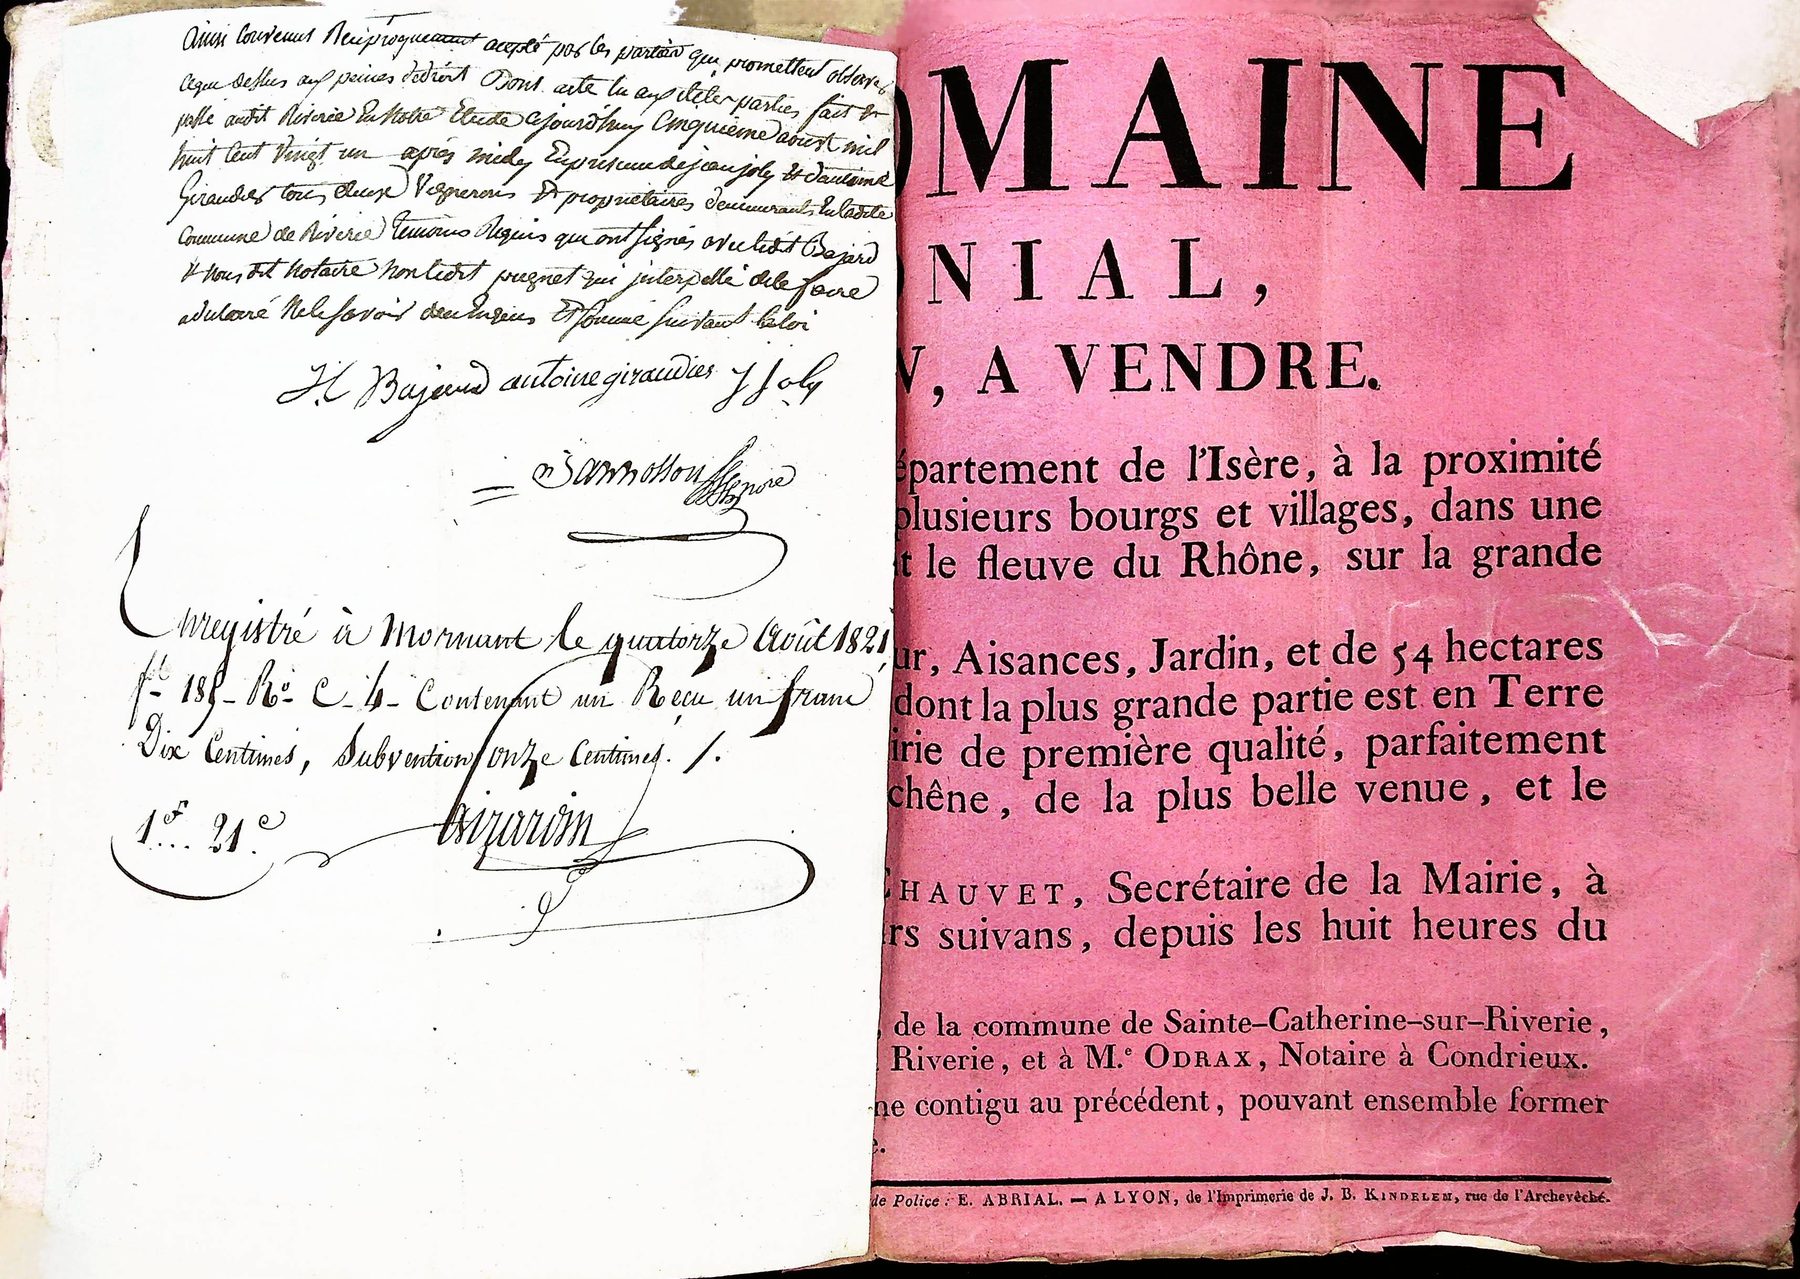 ainsi convenus Reciproquement acepté par les parties qui promettent observer
ce que dessus aux peines de droit Dont acte lu aux dites parties fait et
passé audit Riverie En notre Etude ajourd'huy Cinquieme aoust mil
huit Cent Vingt un après midy En presence de jean joly Et d'antoine
Giraudier tous deux Vignerons Et proprietaires demeurants En ladite
Commune de Riverie temoins Requis qui ont signés avec ledit Bajard
& nous dit notaire non ledit pugnet qui interpellé de le faire
a declaré Ne le savoir de ce Enquis Et sommé suivant la loi
Bajard antoine giraudier J Joly
Enregistré à Mornant le quatorze Août 1821
f.º 185 Rº C. 4 Contenant un Reçu un franc
Dix Centimes, Subvention onze Centimes.
1.f 21.c
Girardin
OMAINE
NIAL,
V, A VENDRE.
épartement de l'Isère, à la proximité
plusieurs bourgs et villages, dans une
t le fleuve du Rhône, sur la grande
ur, Aisances, Jardin, et de 54 hectares
dont la plus grande partie est en Terre
irie de première qualité, parfaitement
chêne, de la plus belle venue, et le
CHAUVET, Secrétaire de la Mairie, à
rs suivans, depuis les huit heures du
, de la commune de Sainte-Catherine-sur-Riverie,
Riverie, et à M.e ODRAX, Notaire à Condrieux.
ne contigu au précédent, pouvant ensemble former
e.
de Police : E. ABRIAL. — A LYON, de l'Imprimerie de J. B. KINDELEM, rue de l'Archevêché.